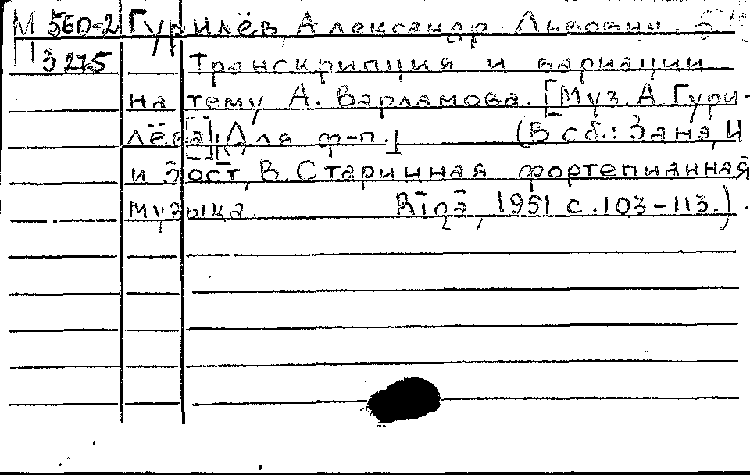 М 560-2 Гурилёв, Александр Львович.
З 275 Транскрипция и вариации
на тему А. Варламова. [Муз. А. Гури-
лёва] Для ф-п. (В сб.: Зана, И
и Зост, В. Старинная фортепианная
музыка. Rīgā, 1951 с. 103-113.).